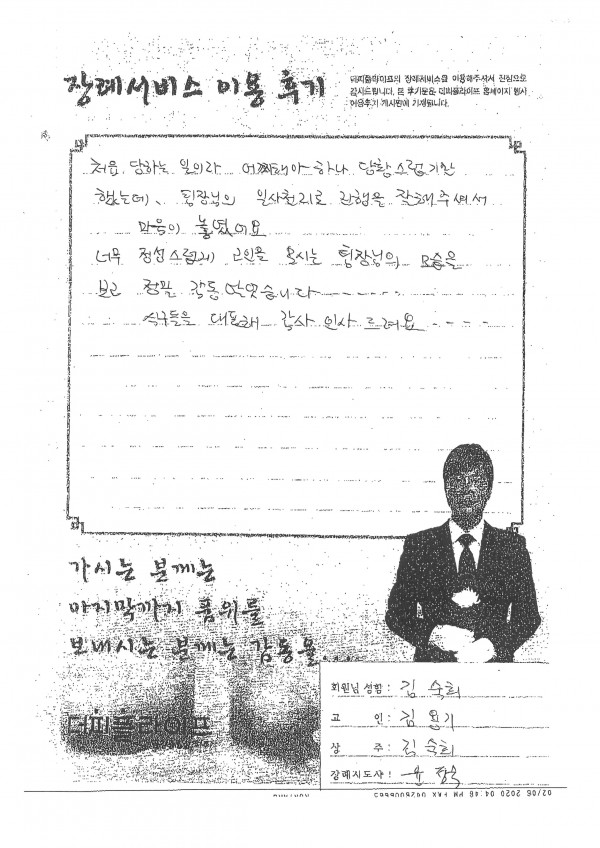 장례서비스 이용 후기
더피플라이프의 장례서비스를 이용해주셔서 진심으로
감사드립니다. 본 후기문은 더피플라이프 홈페이지 행사
이용후기 게시판에 기재됩니다.
처음 당하는 일이라 어찌해야 하나 당황스럽기만
했는데, 팀장님의 일사천리로 진행을 잘해주셔서
마음이 놓였어요
너무 정성스럽게 고인을 모시는 팀장님의 모습을
보고 정말 감동 받았습니다
식구들을 대표해 감사 인사 드려요
가시는 분께는
마지막까지 품위를
보내시는 분께는 감동을...
더피플라이프
회원님 성함 : 김숙희
고 인 : 김용기
상 주 : 김숙희
장례지도사 : 윤
02/06 2020 04:46 PM FAX